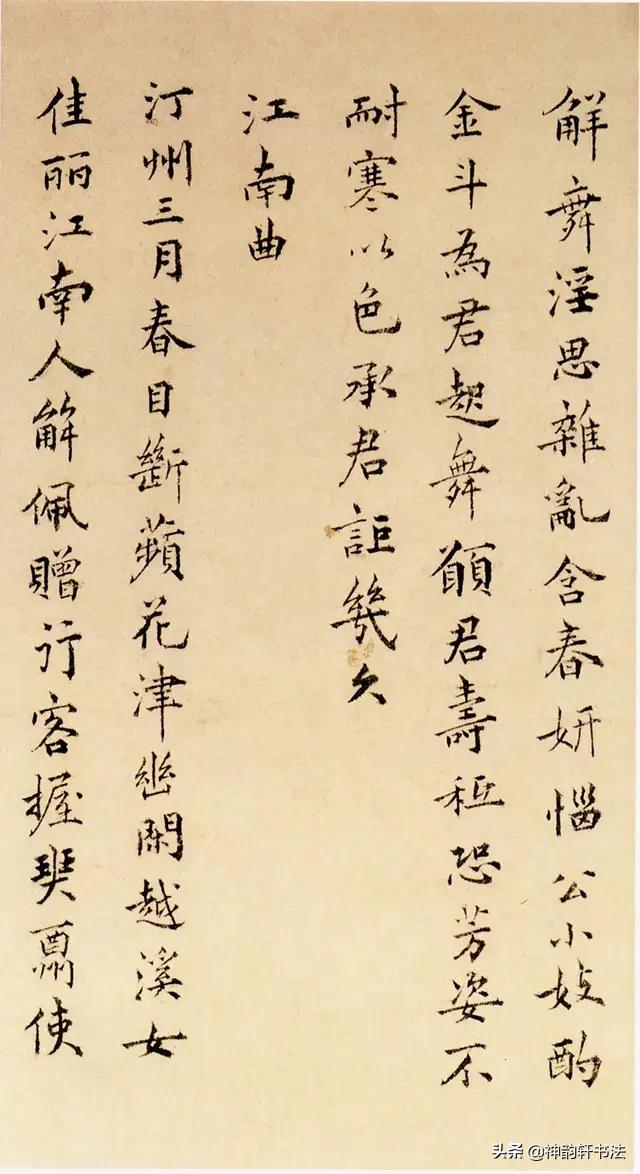 解舞淫思雜亂含春妍惱公小妓酌
金斗為君起舞願君壽秪恐芳姿不
耐寒以色承君詎幾久
江南曲
汀州三月春目斷蘋花津幽閑越溪女
佳丽江南人解佩贈行客握
頭条 @神韵轩书法